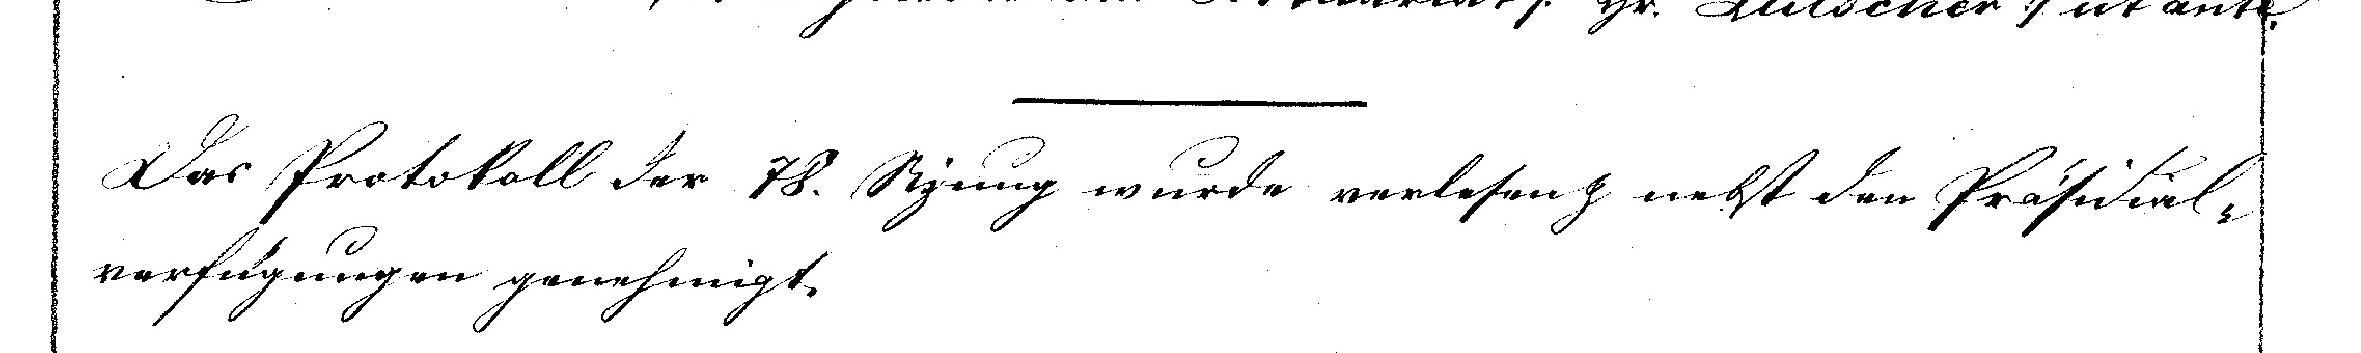 Hr. Lütscher
Das Protokoll der 78. Sizung wurde verlesen & nebst den Präsidial-
verfügungen genehmigt.